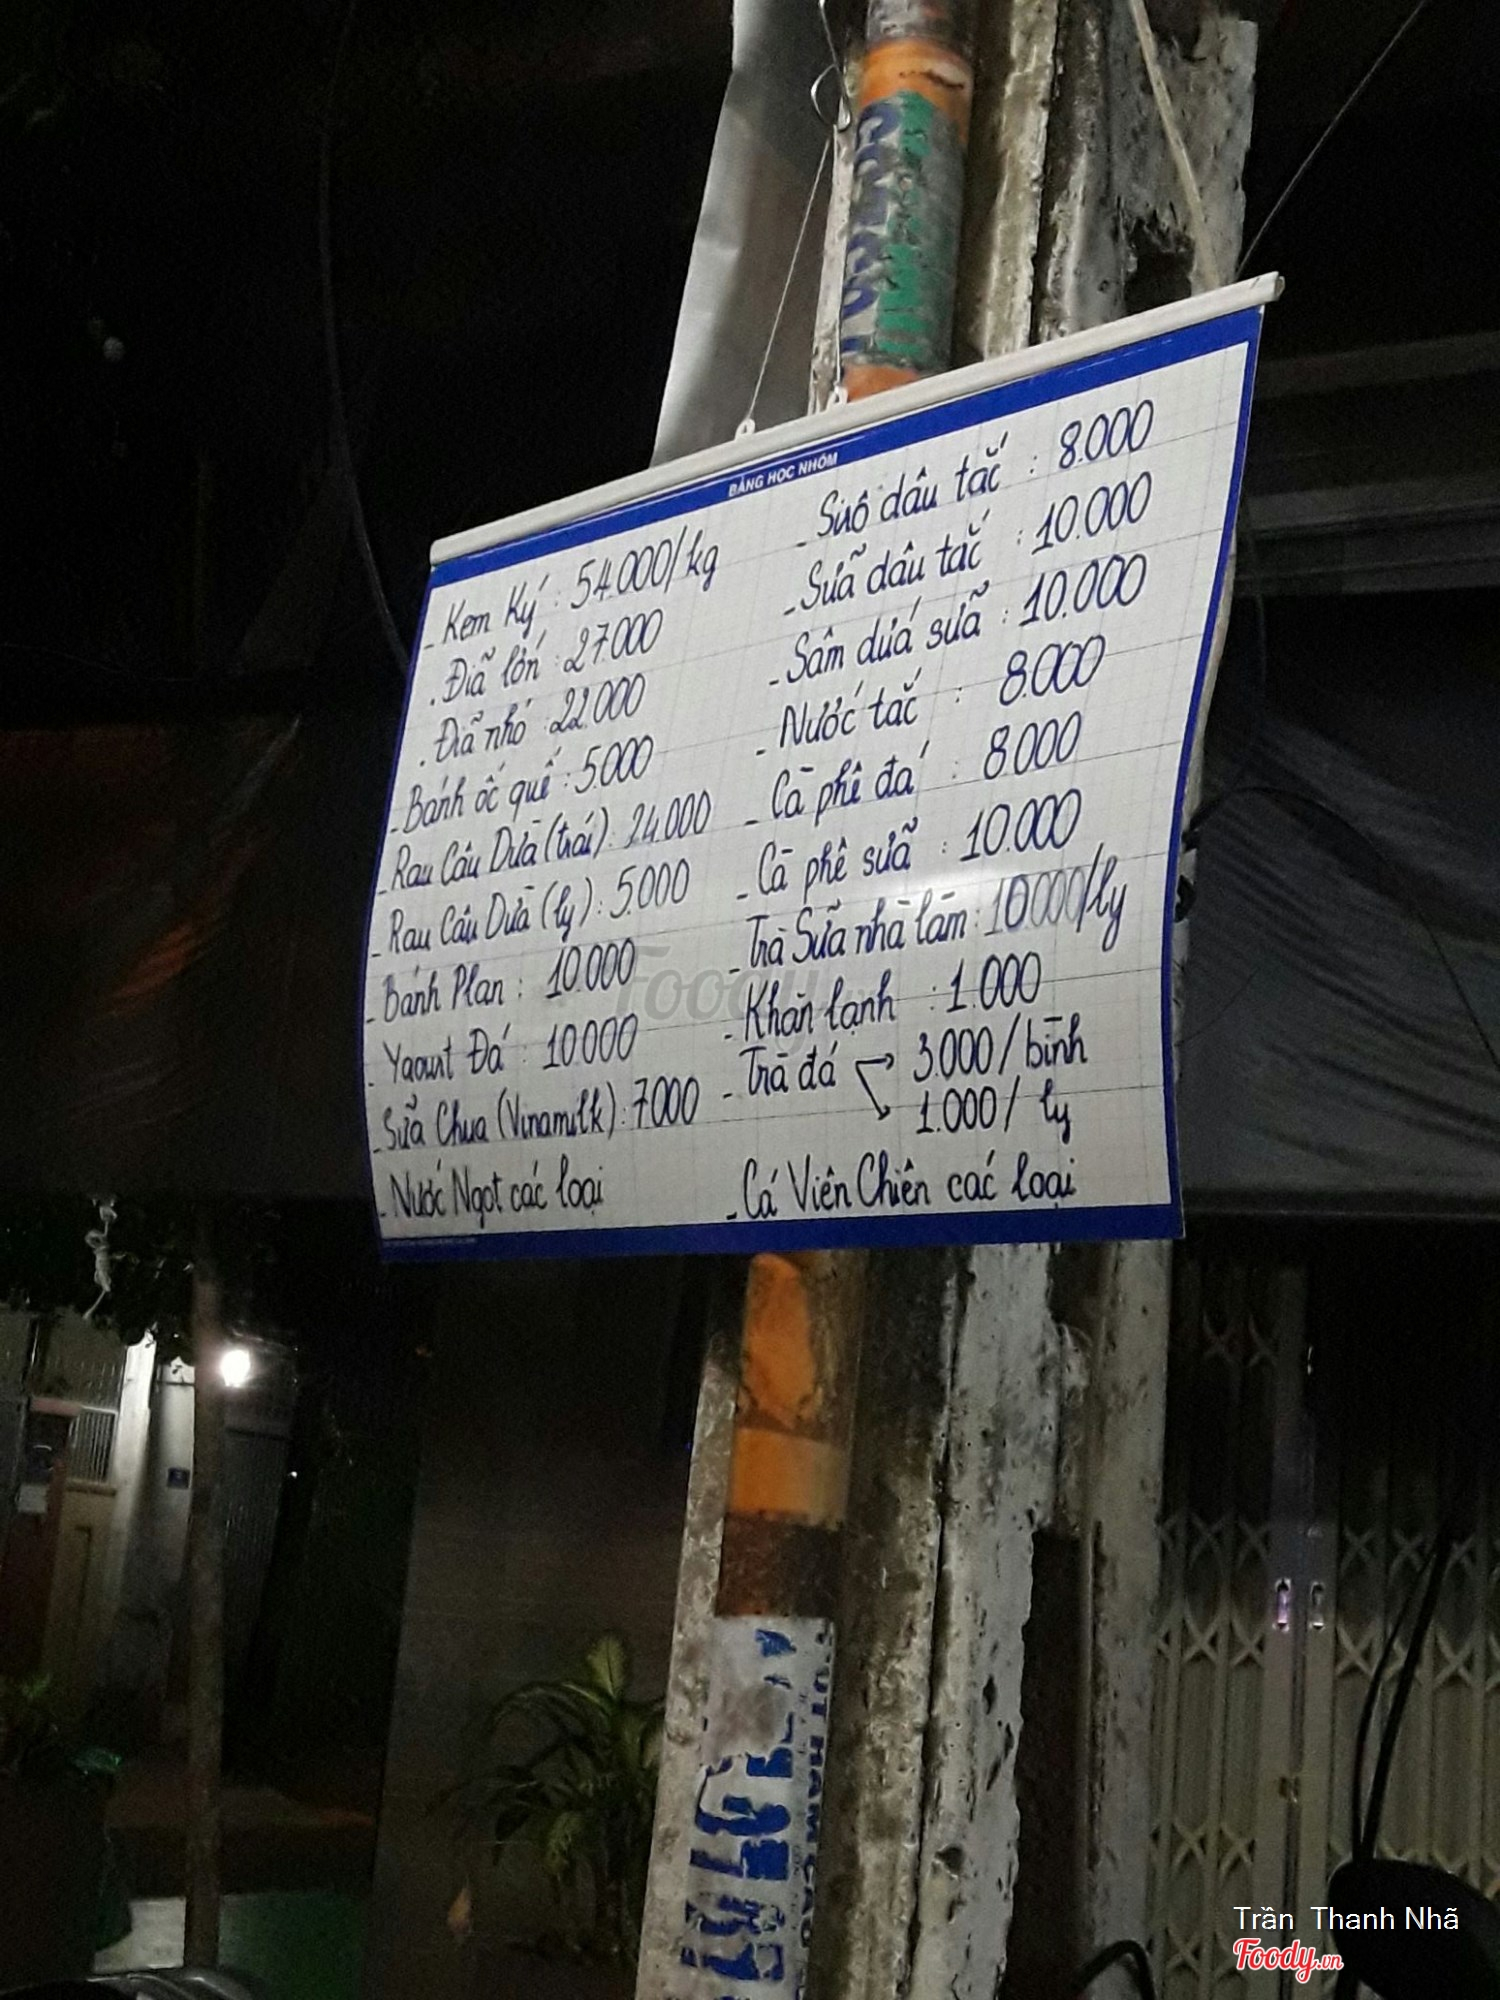 BẢNG HỌC NHÓM
- Kem Ký : 54.000/kg
. Đĩa lớn : 27.000
. Đĩa nhỏ : 22.000
- Bánh ốc quế : 5.000
- Rau Câu Dừa (trái) : 24.000
- Rau Câu Dừa (ly) : 5.000
- Bánh Plan : 10.000
- Yaourt Đá : 10.000
- Sữa Chua (Vinamilk) : 7000
- Nước Ngọt các loại
- Siuô dâu tắc : 8.000
- Sữa dâu tắc : 10.000
- Sâm dứa sữa : 10.000
- Nước tắc : 8.000
- Cà phê đá : 8.000
- Cà phê sữa : 10.000
- Trà Sữa nhà làm : 10.000/ly
- Khăn lạnh : 1.000
- Trà đá → 3.000/bình
1.000/ ly
- Cá Viên Chiên các loại
Foody
Trần Thanh Nhã
Foody.vn